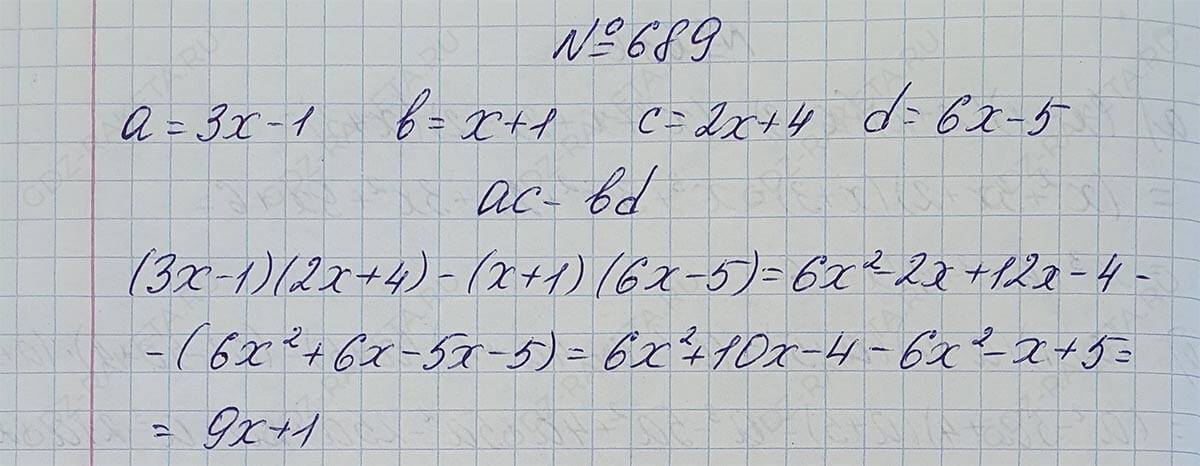 №689
a = 3x - 1 b = x + 1 c = 2x + 4 d = 6x - 5
ac - bd
(3x-1)(2x+4) - (x+1)(6x-5) = 6x² - 2x + 12x - 4 -
- (6x² + 6x - 5x - 5) = 6x² + 10x - 4 - 6x² - x + 5 =
= 9x + 1